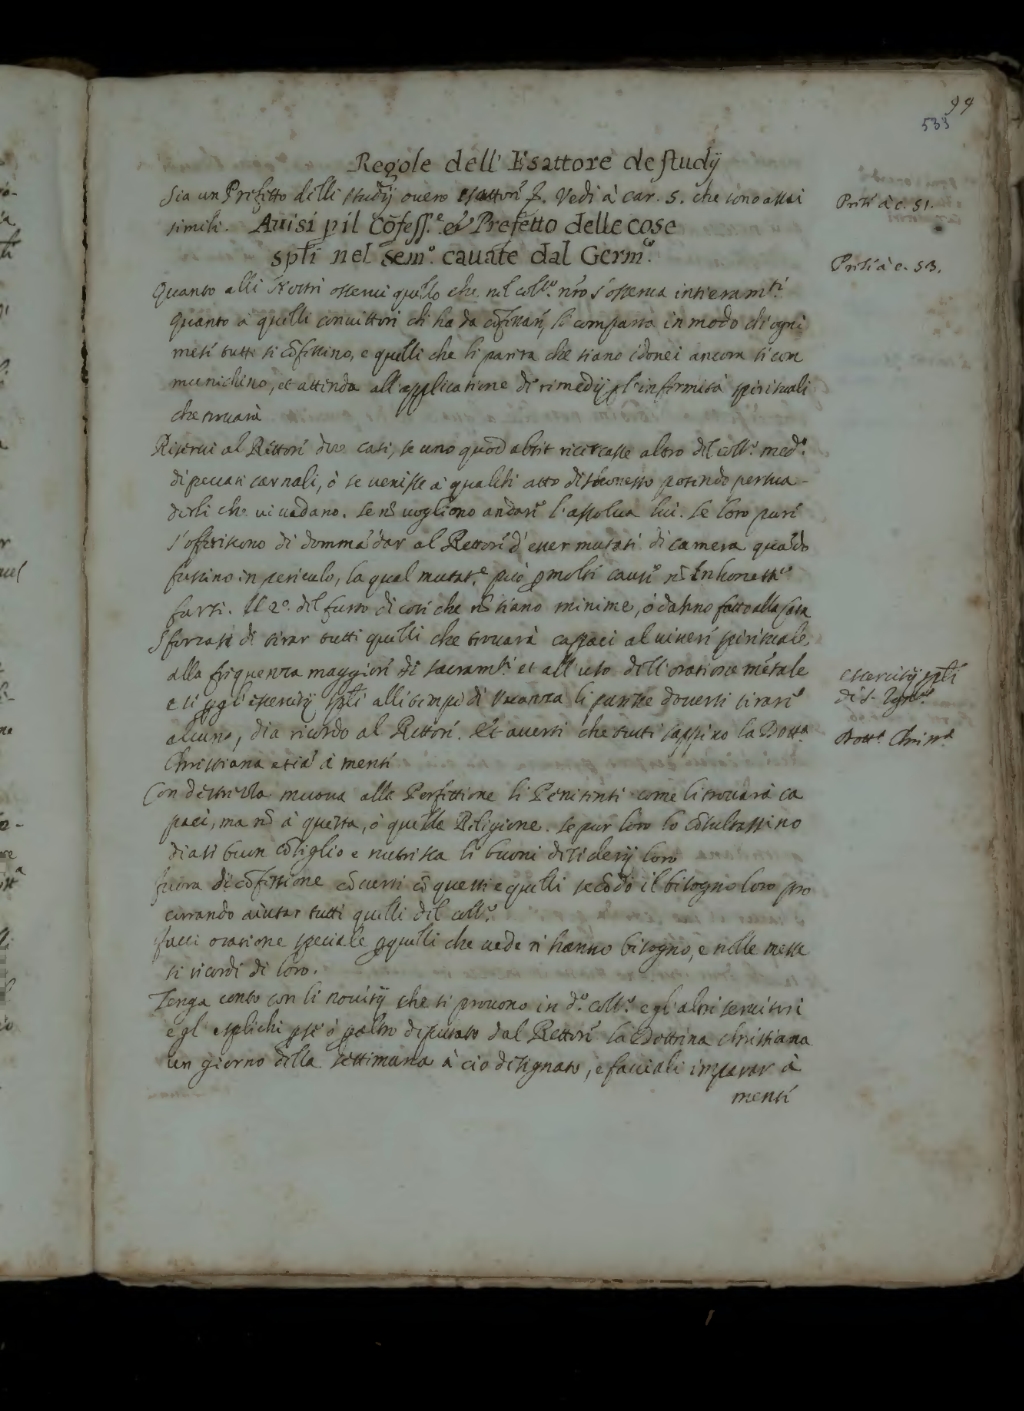 99
533
Regole dell'Esattore de studij
Sia un Prefetto delli studij overo esattori. Vedi à car. 5. che sono assai
Prefti à c. 51.
simili. Avisi p il Cõfess.e et Prefetto delle cose
spli nel sem.o cavate dal Germ.o
Prefti à c. 53.
Quanto alli Nostri osservi quello che nel coll.o nrõ s'osserva intieram.te
Quanto a quelli convittori ch'ha da cõfessare, li comparta in modo ch'ogni
mese tutti si cõfessino, e quelli che li parerà che siano idonei ancora si com
munichino, et attenda all'applicatione di rimedij p l'infermità spirituali
che trovarà
Riservi al Rettore due casi, se uno quod absit ricercasse altro del coll.o med.o
di peccati carnali, ò se venisse a qualche atto dishonesto potendo persua-
derli che vi vadano. Se nõ vogliono andare l'assolva lui. Se loro pure
s'offeriscono di dommãdar al Rettore d'esser mutati di camera quãdo
fussino in periculo, la qual mutat.e può p molti cause nõ inhoneste
farsi. Il 2.o del furto di cose che nõ siano minime, ò danno fatto alla casa
Sforzasi di tirar tutti quelli che trovarà cappaci al vivere spirituale
alla frequenza maggiore di sacram.ti et all'uso dell'oratione mẽtale
essercitij spli
e se p gl'essercitij spli alli tempi di vacanza li paresse doversi tirare
di S. Ign.o
alcuno, dia ricordo al Rettore. Et averti che tutti sappino la Dott.a
Dott.a Christ.a
Christiana etiã à mente
Con destrezza muova alla Perfettione li Penitenti come li trovarà ca
paci, ma nõ à questa, ò quella Religione. Se pur loro lo cõsultassino
diasi buon cõsiglio e nutrisca li buoni desiderij loro
fuora di cõfessione cõversi cõ questi e quelli secõdo il bisogno loro pro
curando aiutar tutti quelli del coll.o
facci oratione speciale p quelli che vede n'hanno bisogno, e nelle messe
si ricordi di loro.
Tenga conto con li novitij che si provono in d.o coll.o e gl'altri servitori
e gl'esplichi p se ò p altro deputato dal Rettore la Dottrina christiana
un giorno della settimana à ciò designato, e facciali imparar à
mente